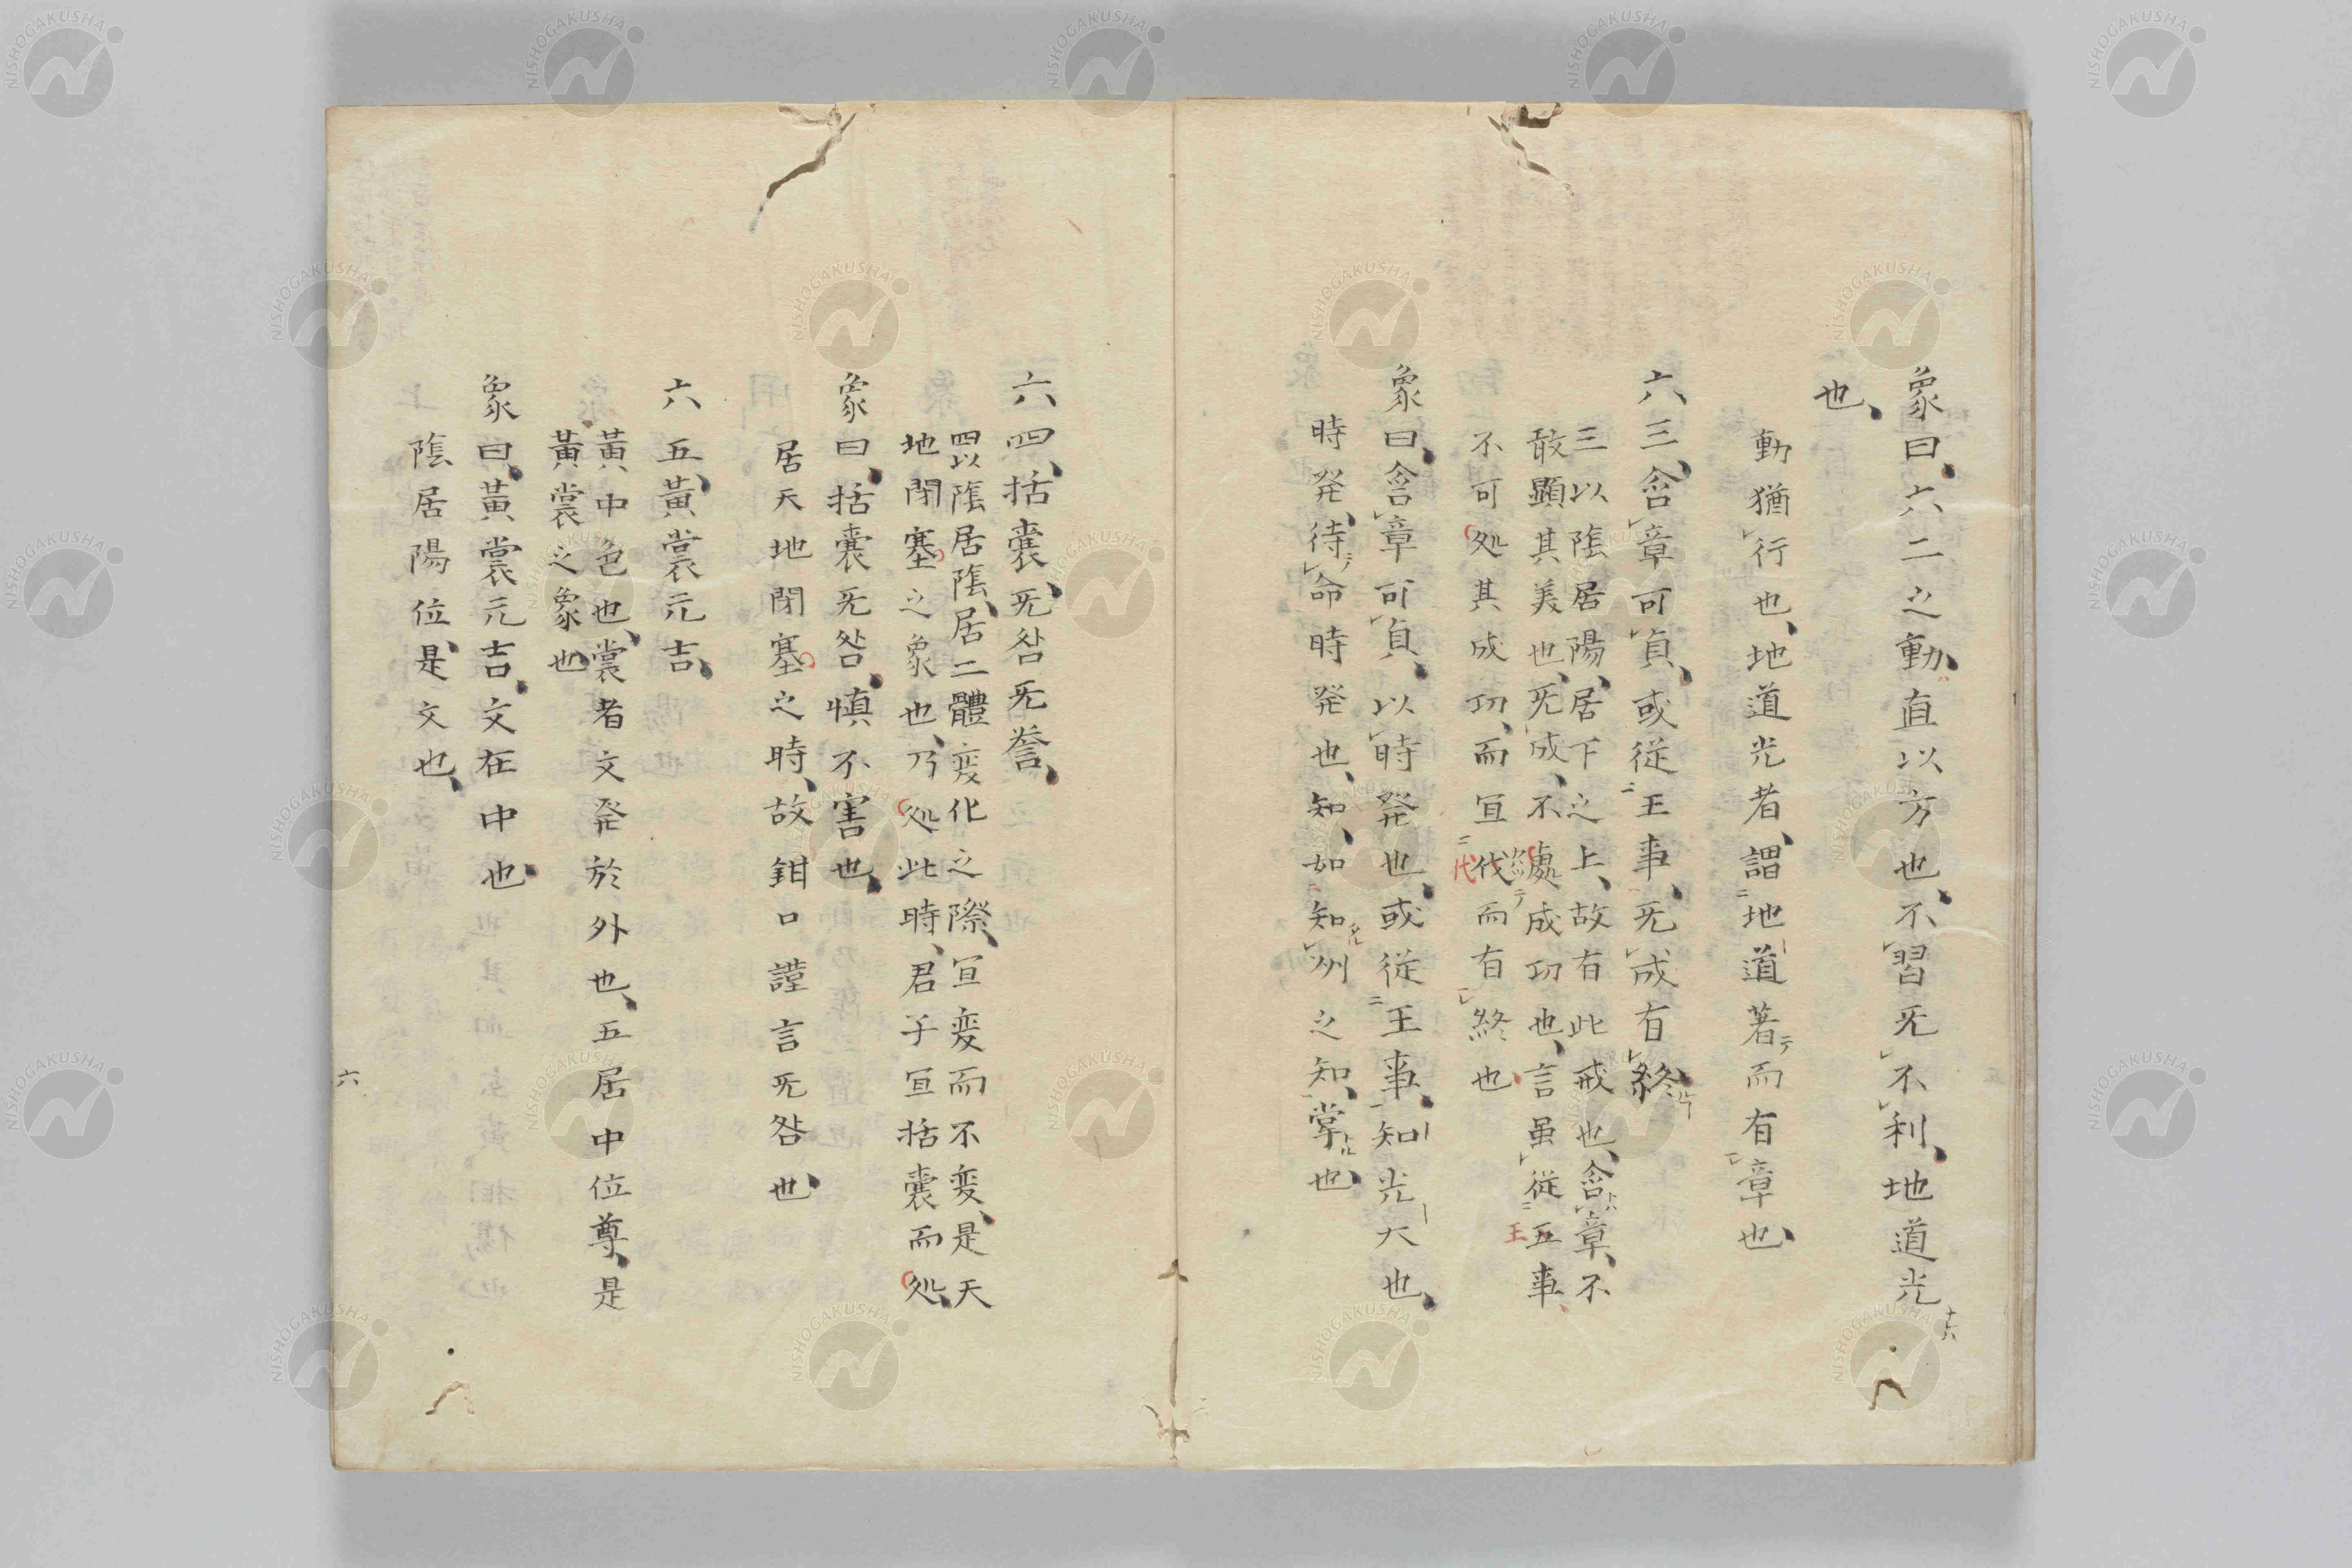 象曰、六二之動、直以方也、不習旡不利、地道光
十六
也、
動猶行也、地道光者、謂地道著而有章也、
六三、含章可貞、或従王事、旡成有終、
三以陰居陽、居下之上、故有此戒也、含章、不
敢顕其美也、旡成、不處成功也、言虽従五事、
王
不可処其成功、而宜伐而有終也
代
象曰、含章可貞、以時発也、或従王事、知光大也、
時発、待命時発也、知、如知州之知、掌也、
六四、括嚢、旡咎旡誉、
四以陰居陰、居二體変化之際、宜変而不変、是天
地閉塞之象也、乃処此時、君子宜括嚢而処、
象曰、括嚢旡咎、慎不害也、
居天地閉塞之時、故鉗口謹言旡咎也、
六五、黃裳元吉、
黃中色也、裳者文発於外也、五居中位尊、是
黃裳之象也
象曰、黃裳元吉、文在中也、
陰居陽位、是文也、
六
NISHOGAKUSHA